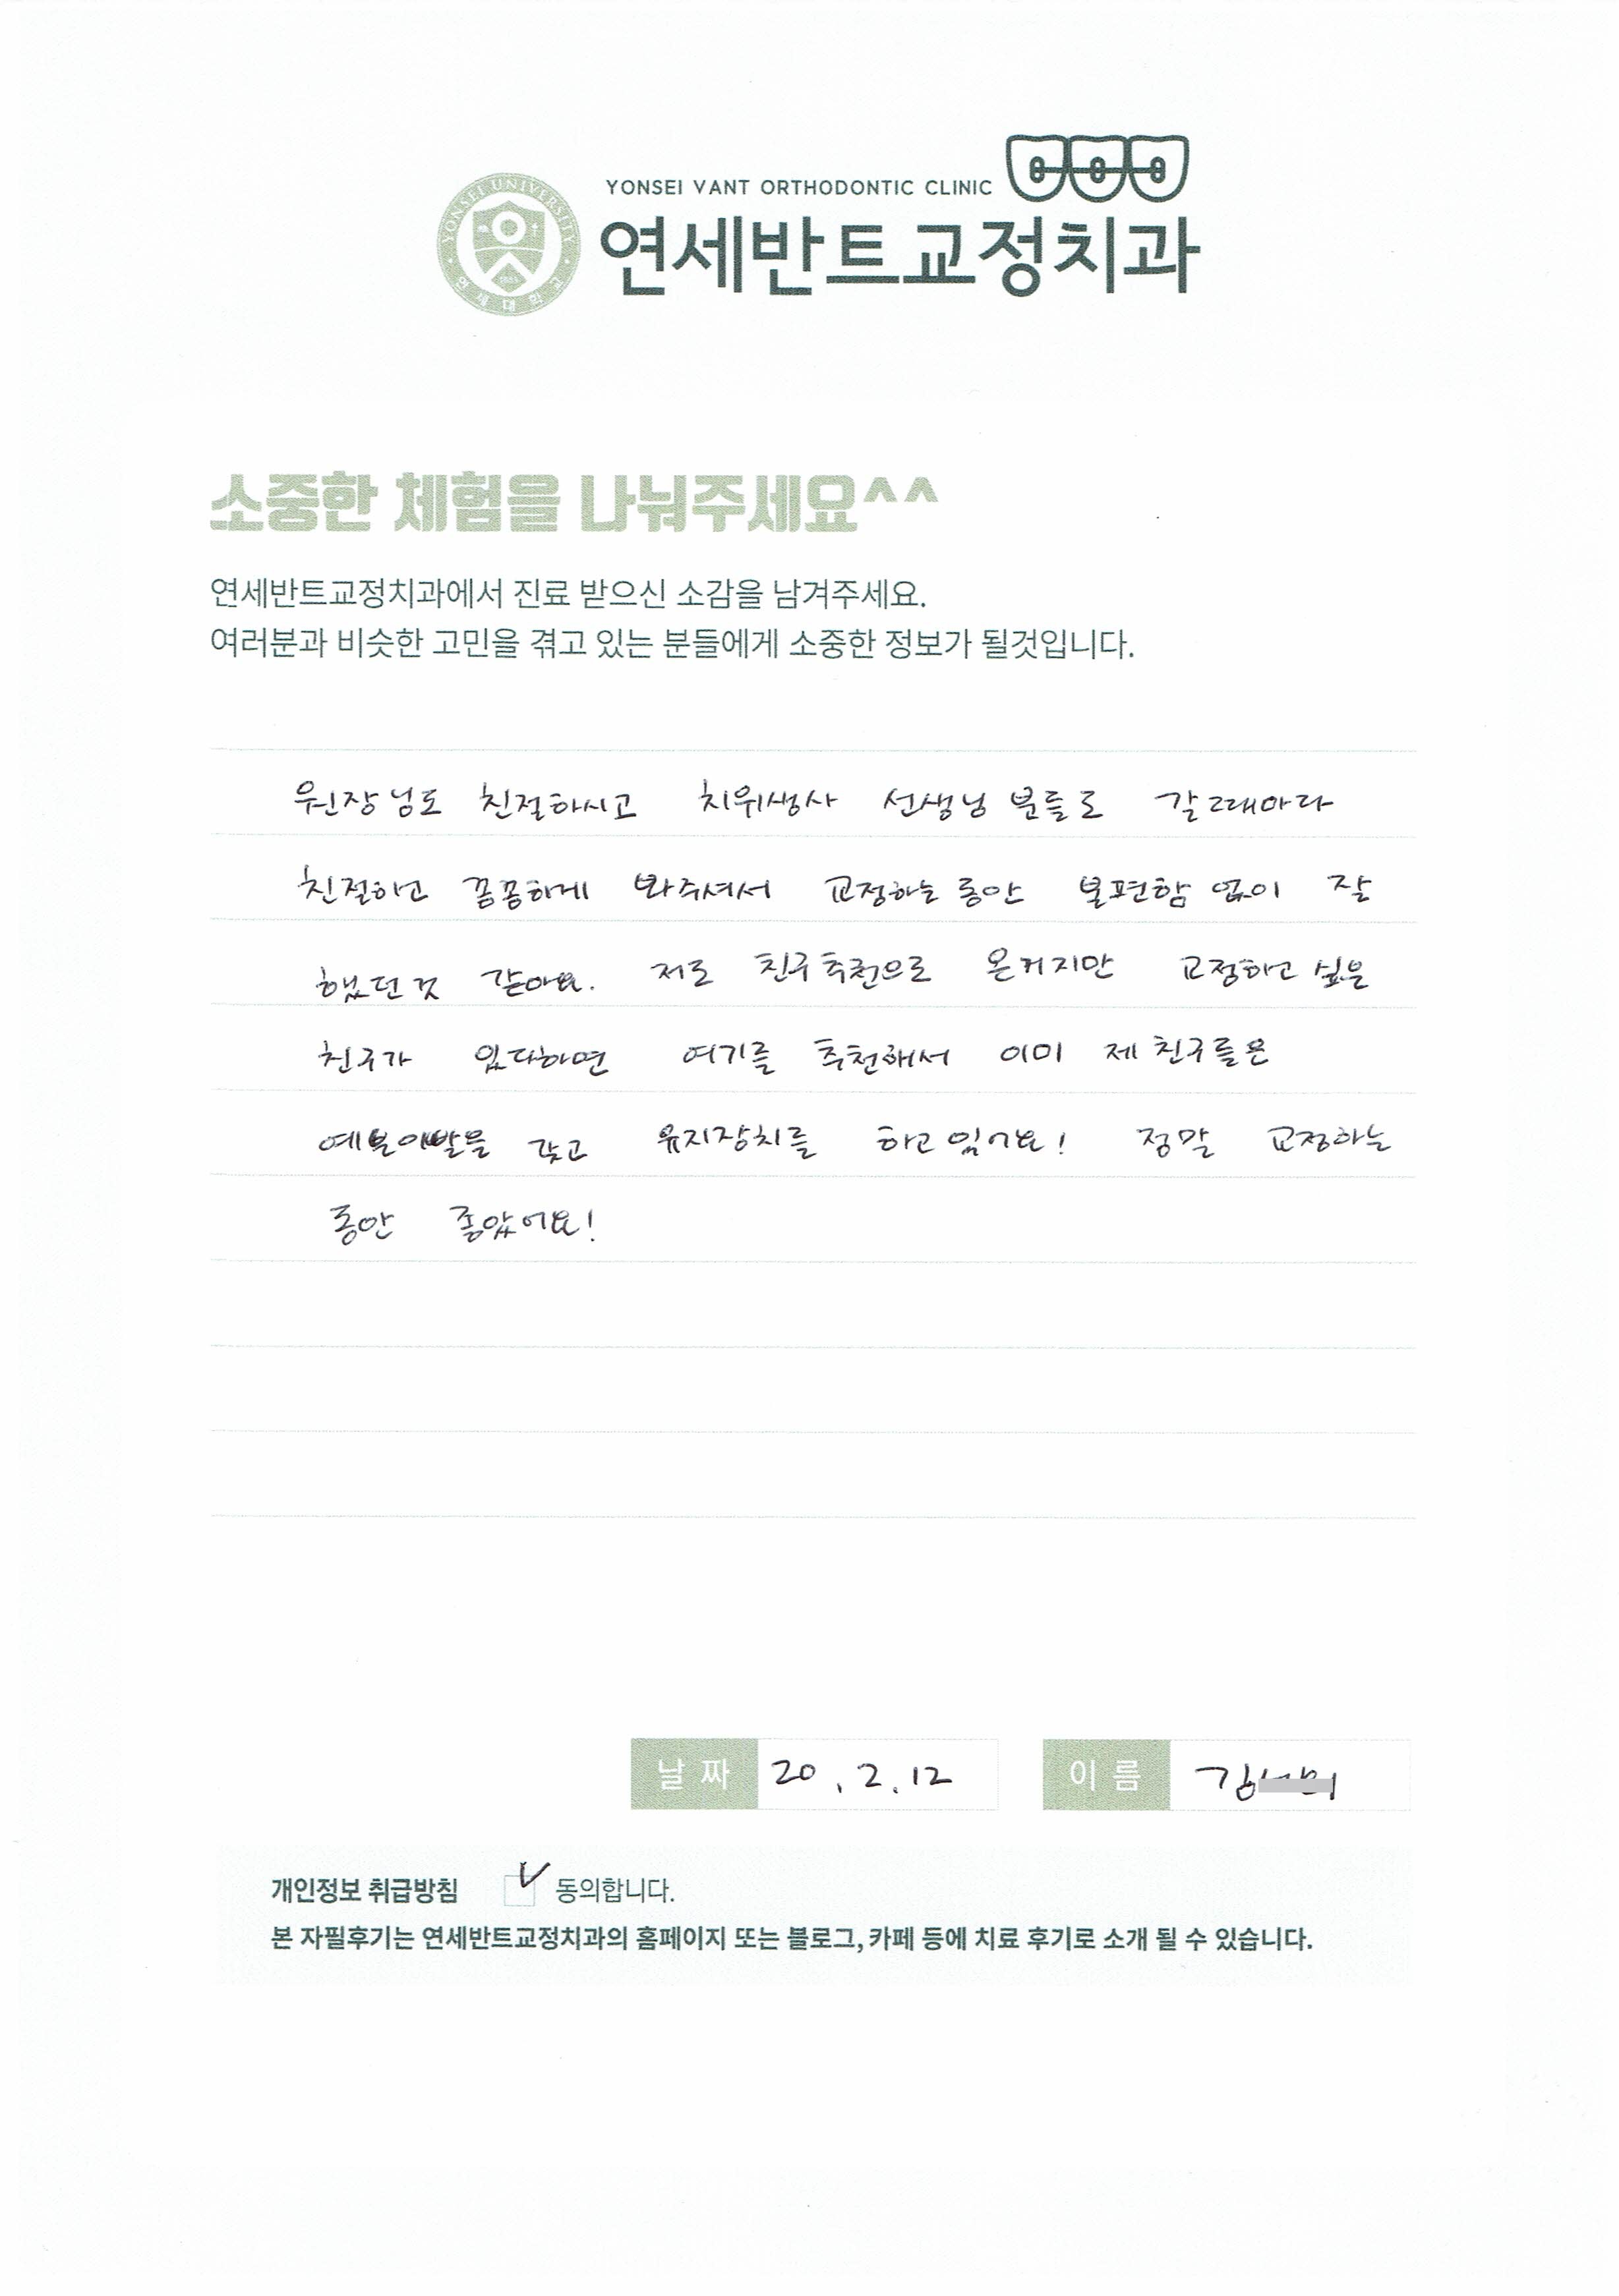 YONSEI VANT ORTHODONTIC CLINIC
YONSEI UNIVERSITY
연세대학교
연세반트교정치과
소중한 체험을 나눠주세요^^
연세반트교정치과에서 진료 받으신 소감을 남겨주세요.
여러분과 비슷한 고민을 겪고 있는 분들에게 소중한 정보가 될것입니다.
원장님도 친절하시고 치위생사 선생님 분들도 갈때마다
친절하고 꼼꼼하게 봐주셔서 교정하는 동안 불편함 없이 잘
했던것 같아요. 저도 친구추천으로 온거지만 교정하고 싶은
친구가 있다하면 여기를 추천해서 이미 제 친구들은
예쁜이빨을 갖고 유지장치를 하고있어요! 정말 교정하는
동안 좋았어요!
날짜 20.2.12 이름 김
개인정보 취급방침 동의합니다.
본 자필후기는 연세반트교정치과의 홈페이지 또는 블로그, 카페 등에 치료 후기로 소개 될 수 있습니다.